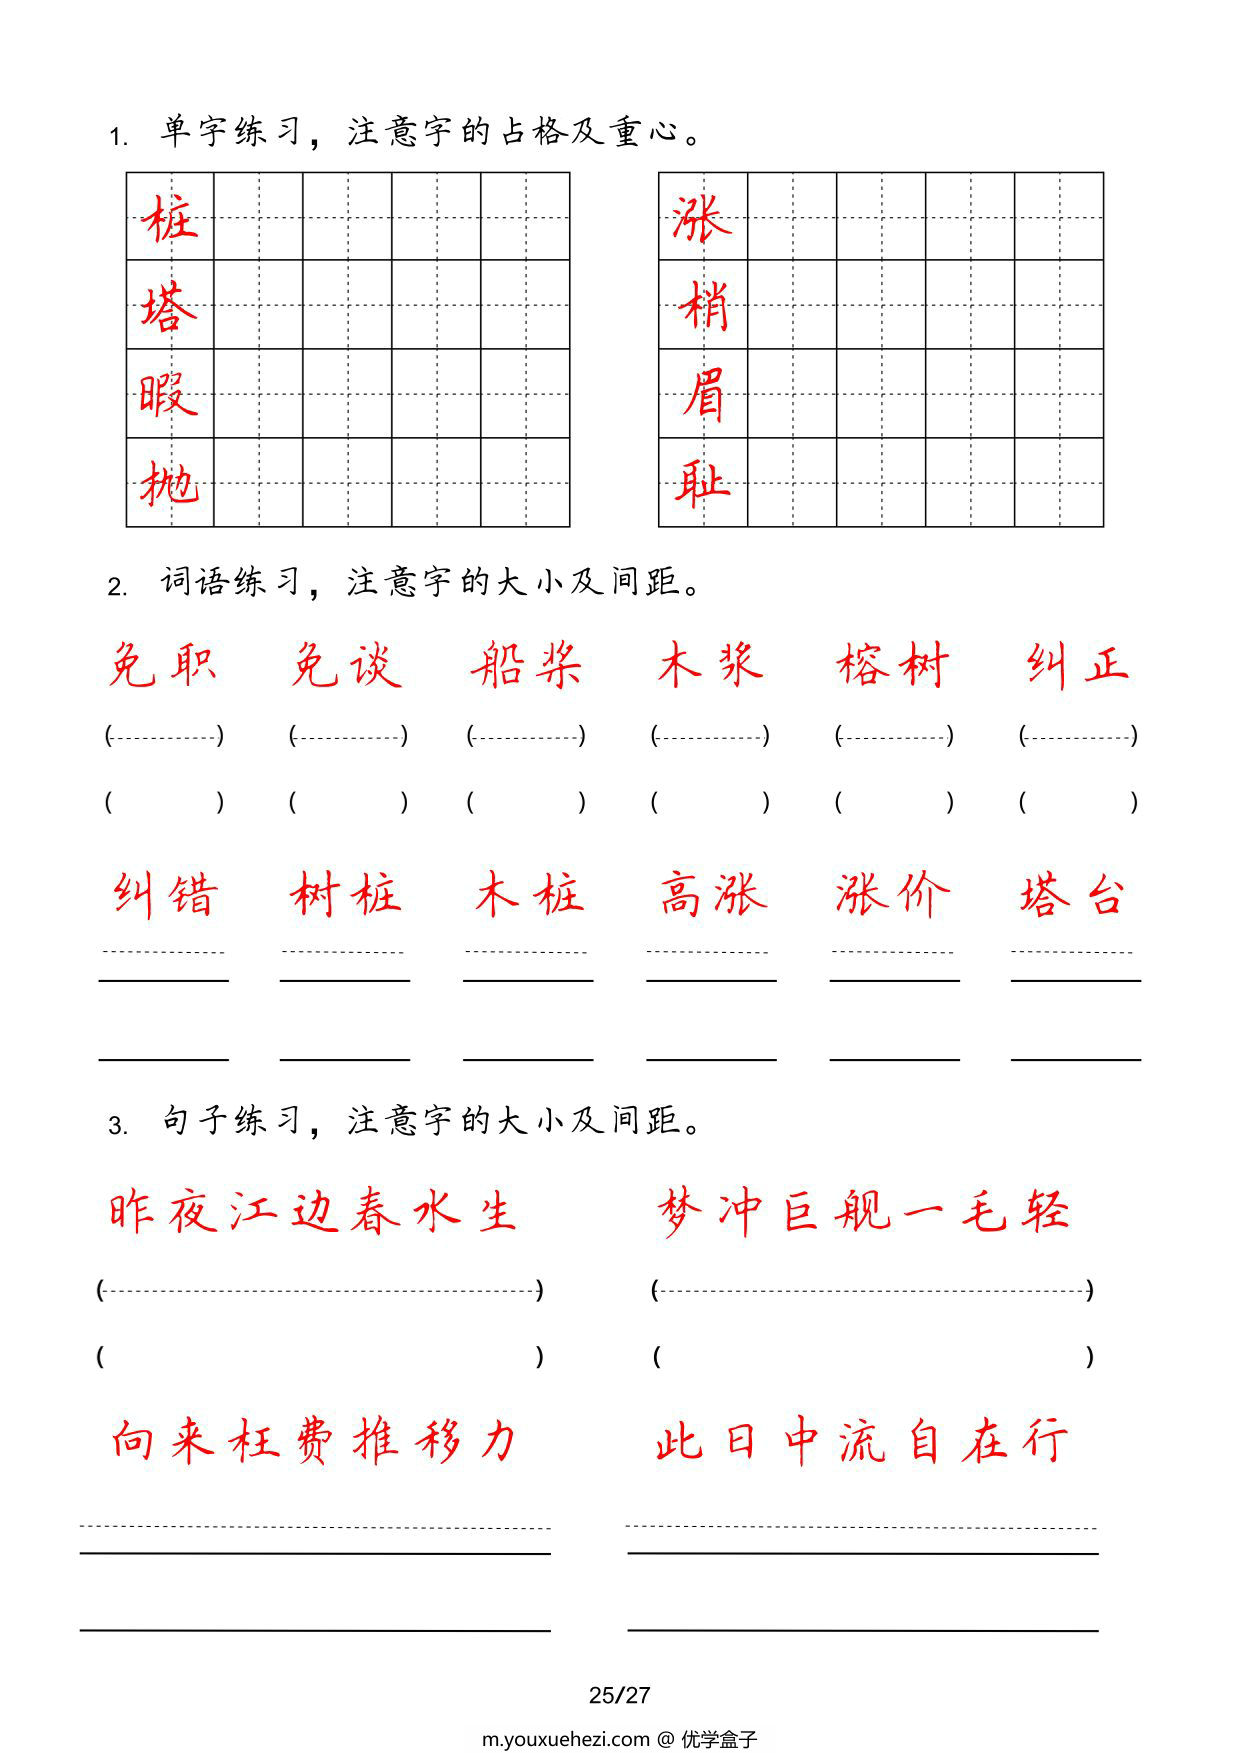 1. 单字练习，注意字的占格及重心。
桩 涨
塔 梢
暇 眉
抛 耻
2. 词语练习，注意字的大小及间距。
免职 免谈 船桨 木浆 榕树 纠正
( ) ( ) ( ) ( ) ( ) ( )
( ) ( ) ( ) ( ) ( ) ( )
纠错 树桩 木桩 高涨 涨价 塔台
3. 句子练习，注意字的大小及间距。
昨夜江边春水生 梦冲巨舰一毛轻
( ) ( )
( ) ( )
向来枉费推移力 此日中流自在行
25/27
m.youxuehezi.com @ 优学盒子